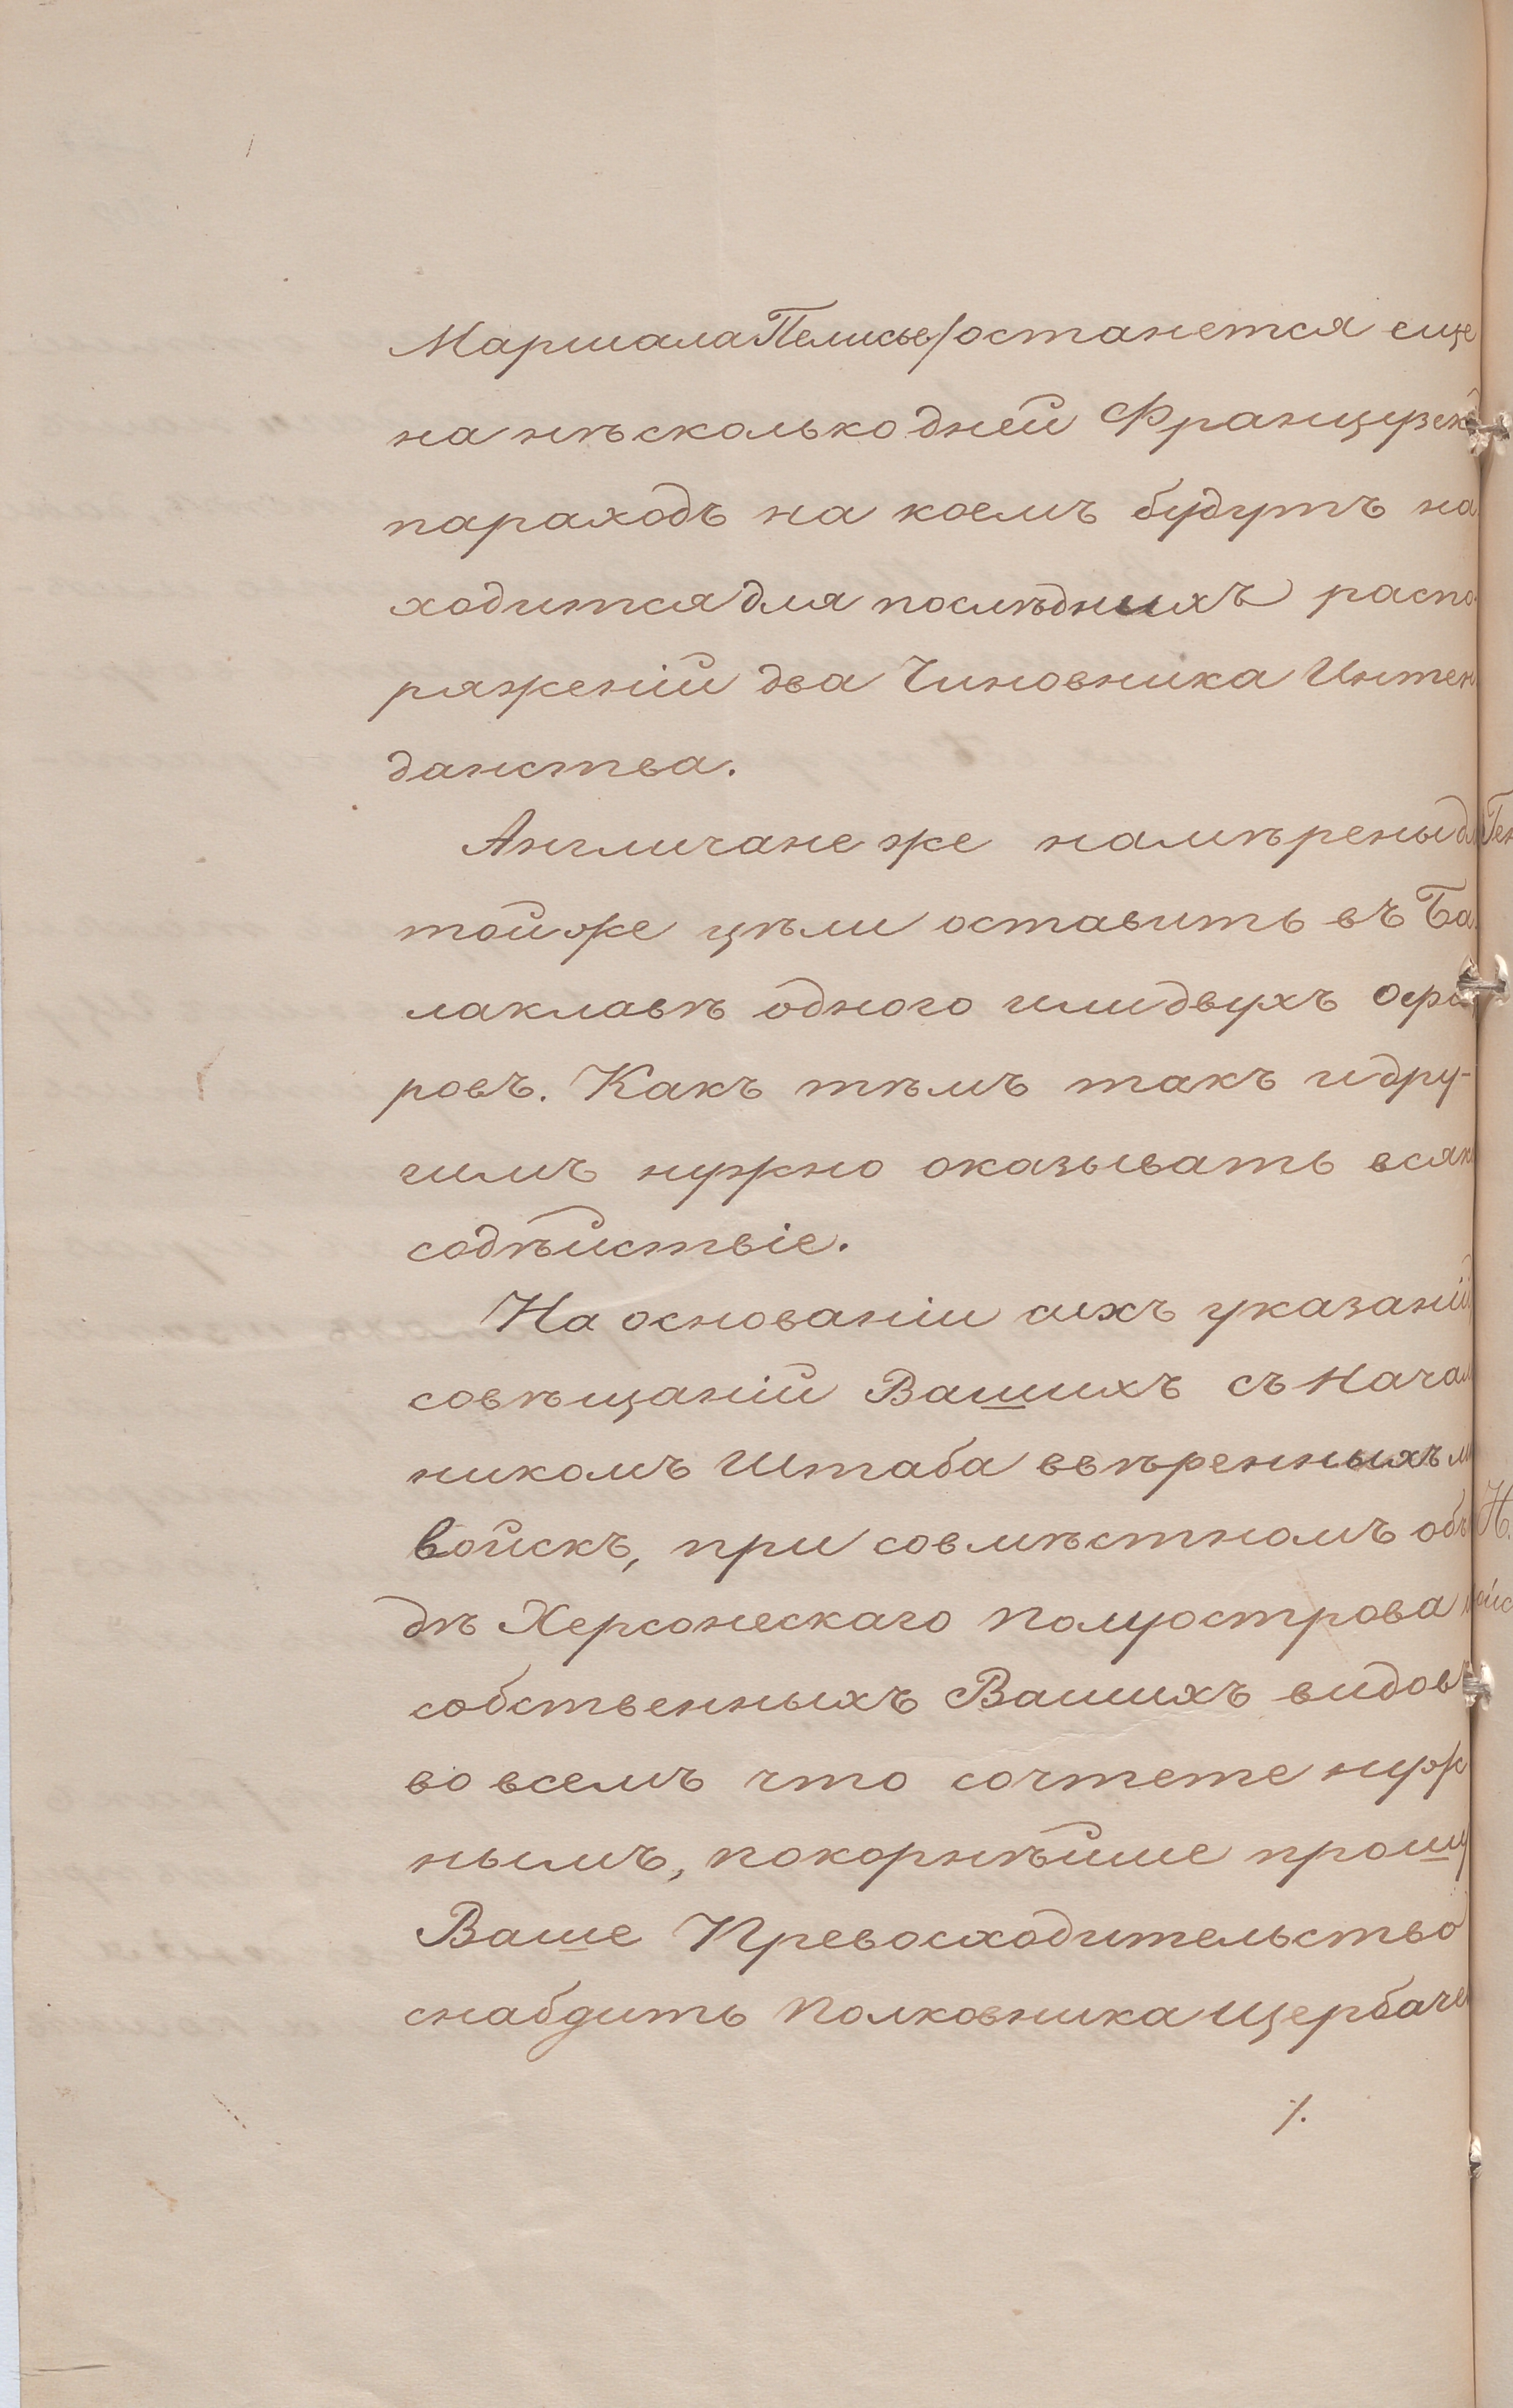 Маршала Пелисье/останется еще
на нѣсколько дней Французск
параходъ на коемъ будутъ на
ходится для послѣднихъ распо
ряженій два Чиновника Интен
данства.
Англичане же намѣрены дл
той же цѣли оставить въ Ба
лаклавѣ одного или двухъ офи
ровъ. Какъ тѣмъ такъ и дру-
гимъ нужно оказывать всяк
содѣйствіе.
На основаніи сихъ указаній
совѣщаній Вашихъ съ Начал
никомъ Штаба ввѣренныхъ м
войскъ, при совмѣстномъ объ
дѣ Херсонескаго полуострова
собственныхъ Вашихъ видовъ
во всемъ что сочтете нуж
нымъ, покорнѣйше прошу
Ваше Превосходительство
снабдить Полковника Щербаче
/.